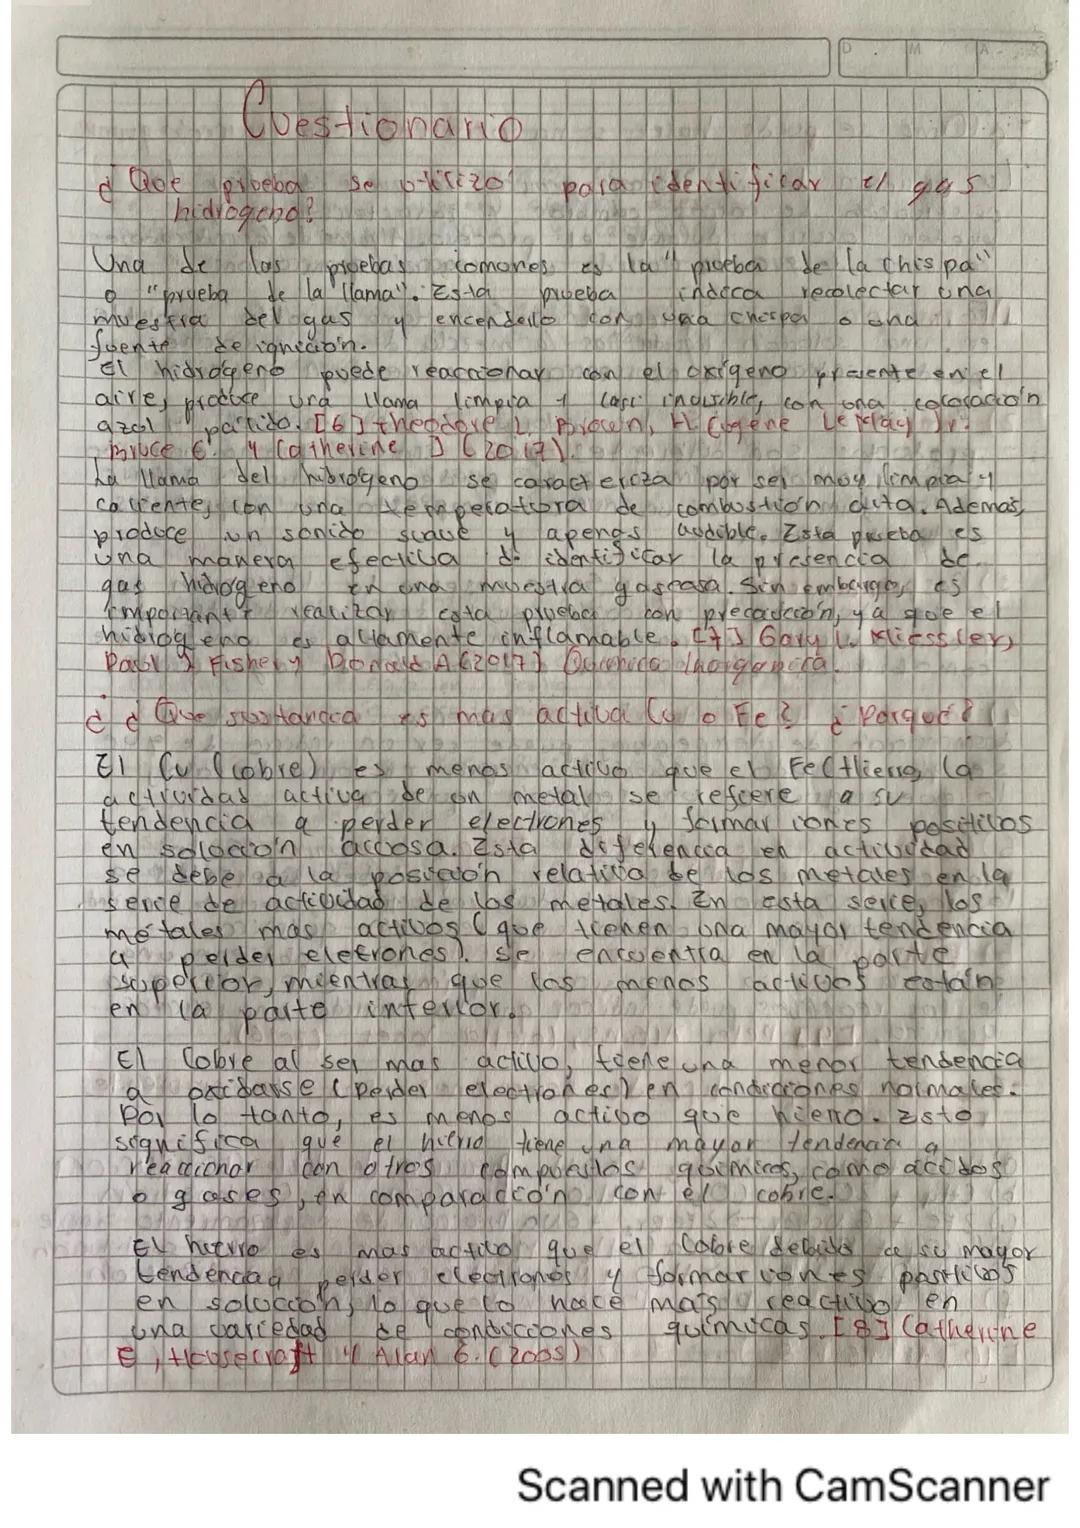 D M A
Cuestionario
¿ Que prueba se utilizo para identificar el gas
hidrogeno?
Una de las pruebas comunes es la "prueba de la chispa"
o "prueba de la llama". Esta prueba indica recolectar una
muestra del gas y encenderlo con una chispa o una
fuente de ignición.
El hidrógeno puede reaccionar con el oxígeno presente en el
aire, produce una llama limpia y casi invisible, con una coloración
azul palido. [6] theodore L. Brown, H. Eugene LeMay Jr.
Bruce E. y Catherine J (2017).
La llama del hidrógeno se caracteriza por ser muy limpia y
caliente, con una temperatura de combustión alta. Ademas,
produce un sonido suave y apenas audible. Esta prueba es
una manera efectiva de identificar la presencia de
gas hidrogeno en una muestra gaseosa. Sin embargo, es
importante realizar esta prueba con precaución, ya que el
hidrogeno es altamente inflamable. [7] Gary L. Miessler,
Paul J Fisher y Donald A (2017) Quimica Inorganica.
¿ ¿ Que sustancia es mas activa Cu o Fe? ¿ Porque?
El Cu (cobre) es menos activo que el Fe (Hierro, la
actividad activa de un metal se refiere a su
tendencia a perder electrones y formar iones positivos
en solución accosa. Esta diferencia en actividad
se debe a la posición relativa de los metales en la
serie de actividad de los metales. En esta serie, los
metales mas activos (que tienen una mayor tendencia
a perder eletrones). se encuentra en la parte
superior, mientras que los menos activos están
en la parte inferior.
El Cobre al ser mas activo, tiene una menor tendencia
a oxidarse (perder electrones) en condiciones normales.
Por lo tanto, es menos activo que hierro. Esto
significa que el hierro tiene una mayor tendencia a
reaccionar con otros compuestos químicos, como acidos
o gases, en comparación con el cobre.
El hierro es mas activo que el Cobre debido a su mayor
tendencia a perder electrones y formar iones positivos
en solución, lo que lo hace más reactivo en
una variedad de condiciones químicas. [8] Catherine
E, Housecraft y Alan G. (2005)
Scanned with CamScanner